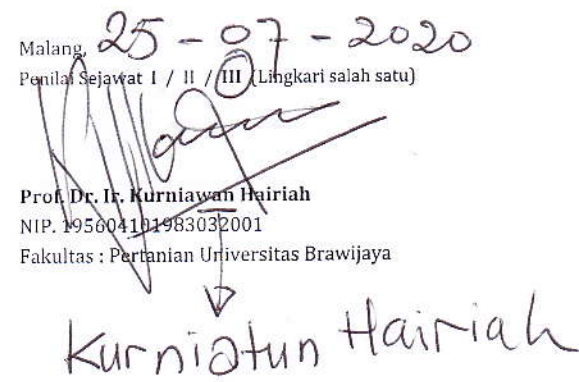 Malang, 25 - 07 - 2020
Penilai Sejawat I / II / III (Lingkari salah satu)
Prof. Dr. Ir. Kurniawan Hairiah
NIP. 195604101983032001
Fakultas : Pertanian Universitas Brawijaya
Kurniatun Hairiah